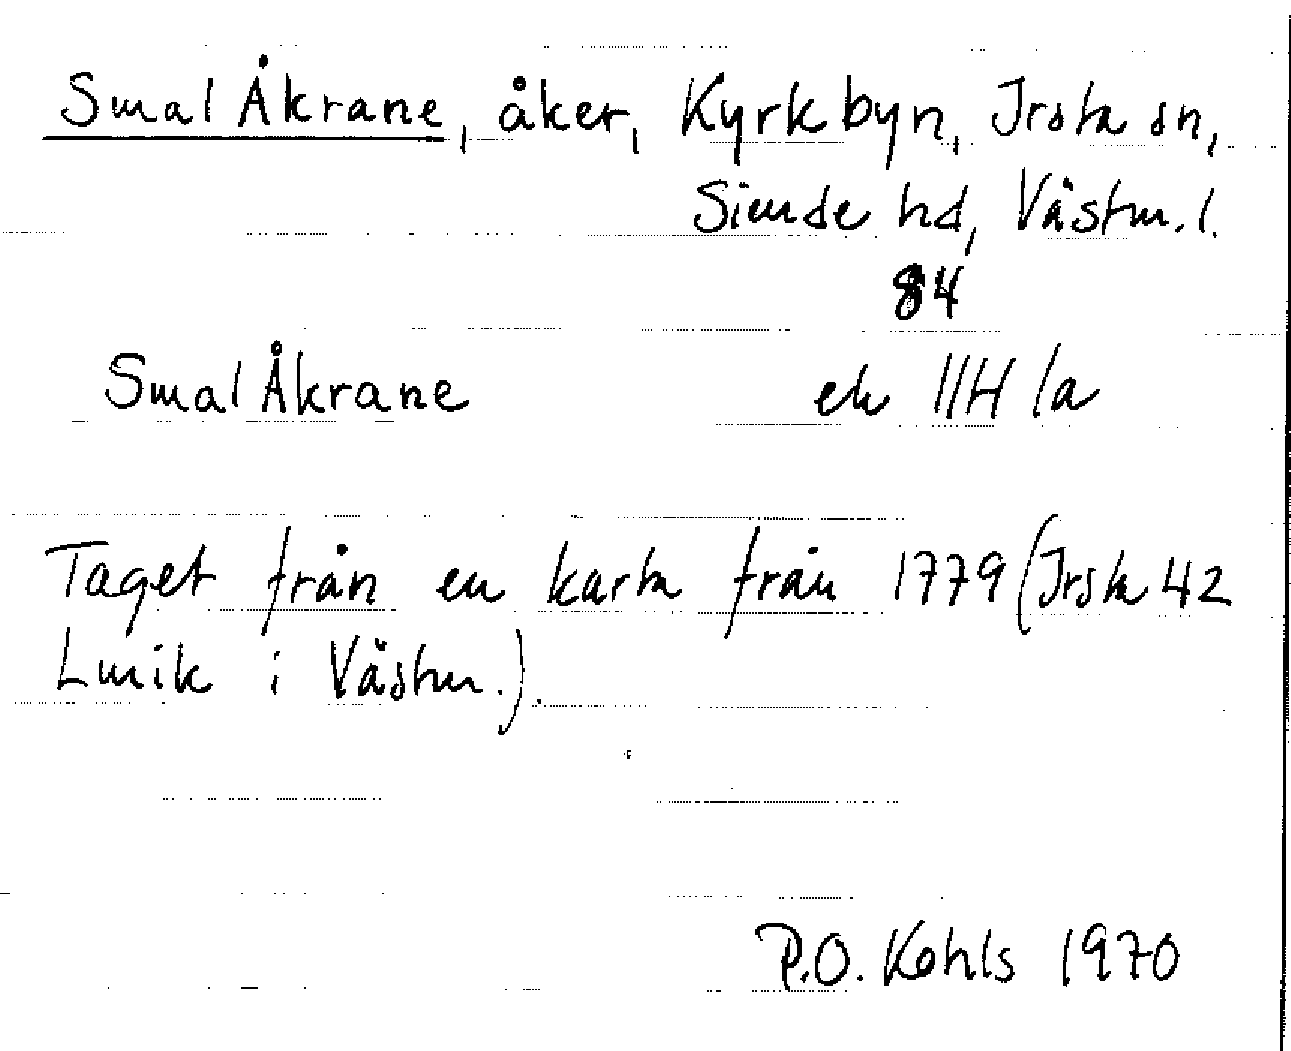 Smal Åkrane, åker, Kyrkbyn, Irsta sn,
Siende hd, Västm. l.
84
Smal Åkrane ek 11H 1a
Taget från en karta från 1779 (Irsta 42
Lmik i Västm.).
P.O. Kohls 1970